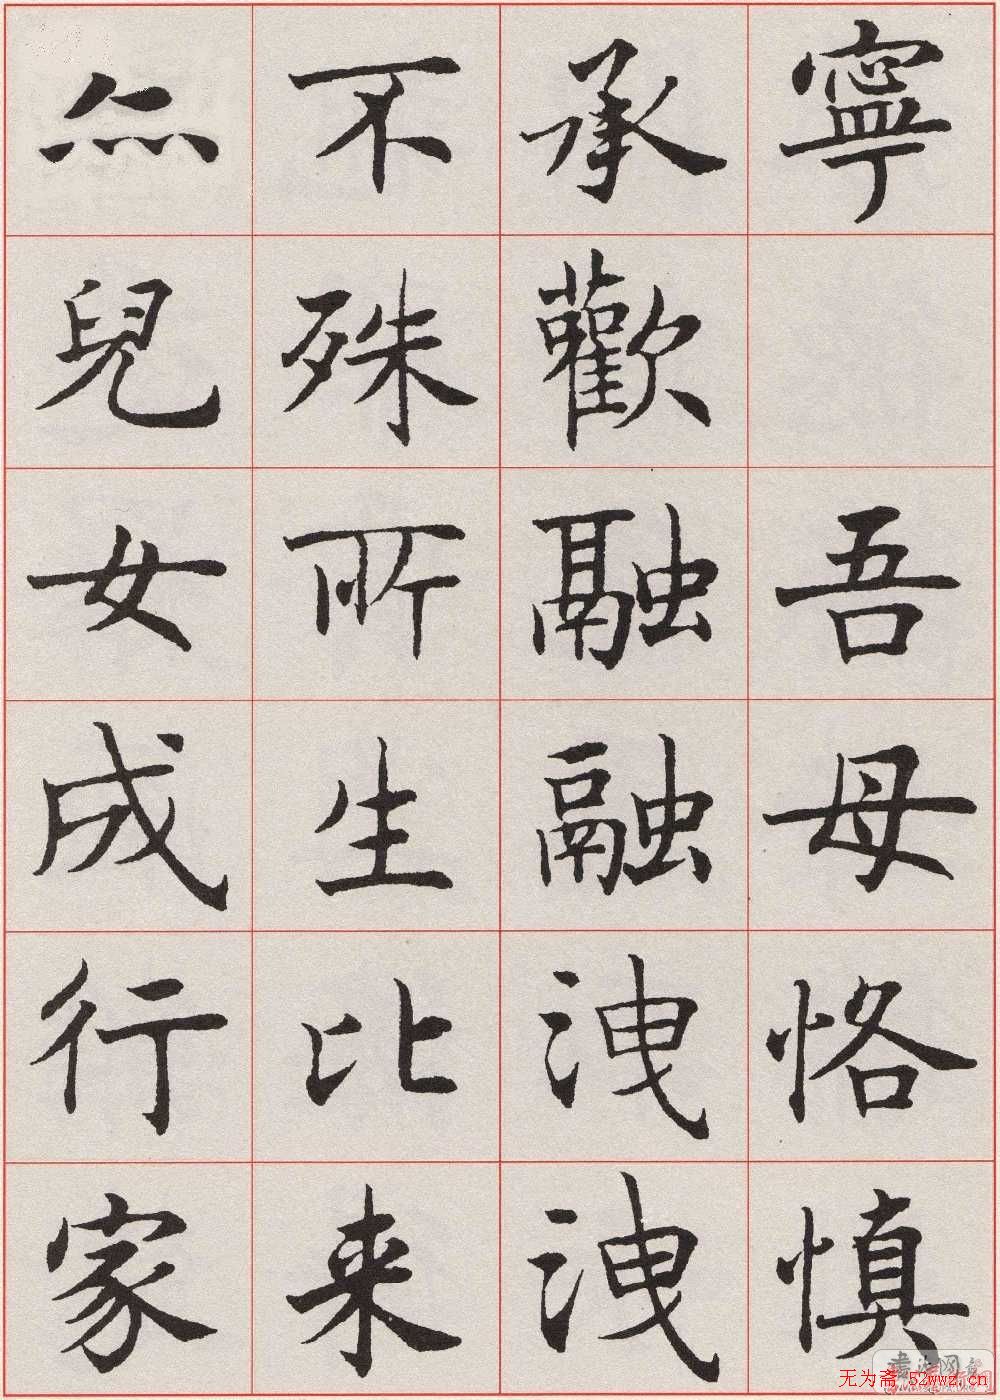 寧 吾母恪慎
承歡融融洩洩
不殊所生比来
兒女成行家
无为斋.52wwz.cn